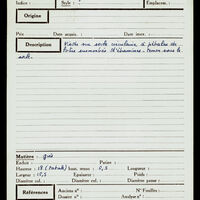 Index : Style : ? Emplacem. :
Origine
Pée Date acquis. : Date inscr. :
Description Vache au socle circulaire à pétales de
lotus surmontés d'étamines - tenon sous le
socle.
Matière : grès
Endroit : Patine :
Hauteur : 18 (totale) haut. tenon : 2,5 Longueur :
Largeur : 10,5 Épaisseur : Poids :
Diamètre ext. : Diamètre int. : Diamètre panse :
Références Ancien n° : N° Fouilles :
Dossier n° : Analyse n° :